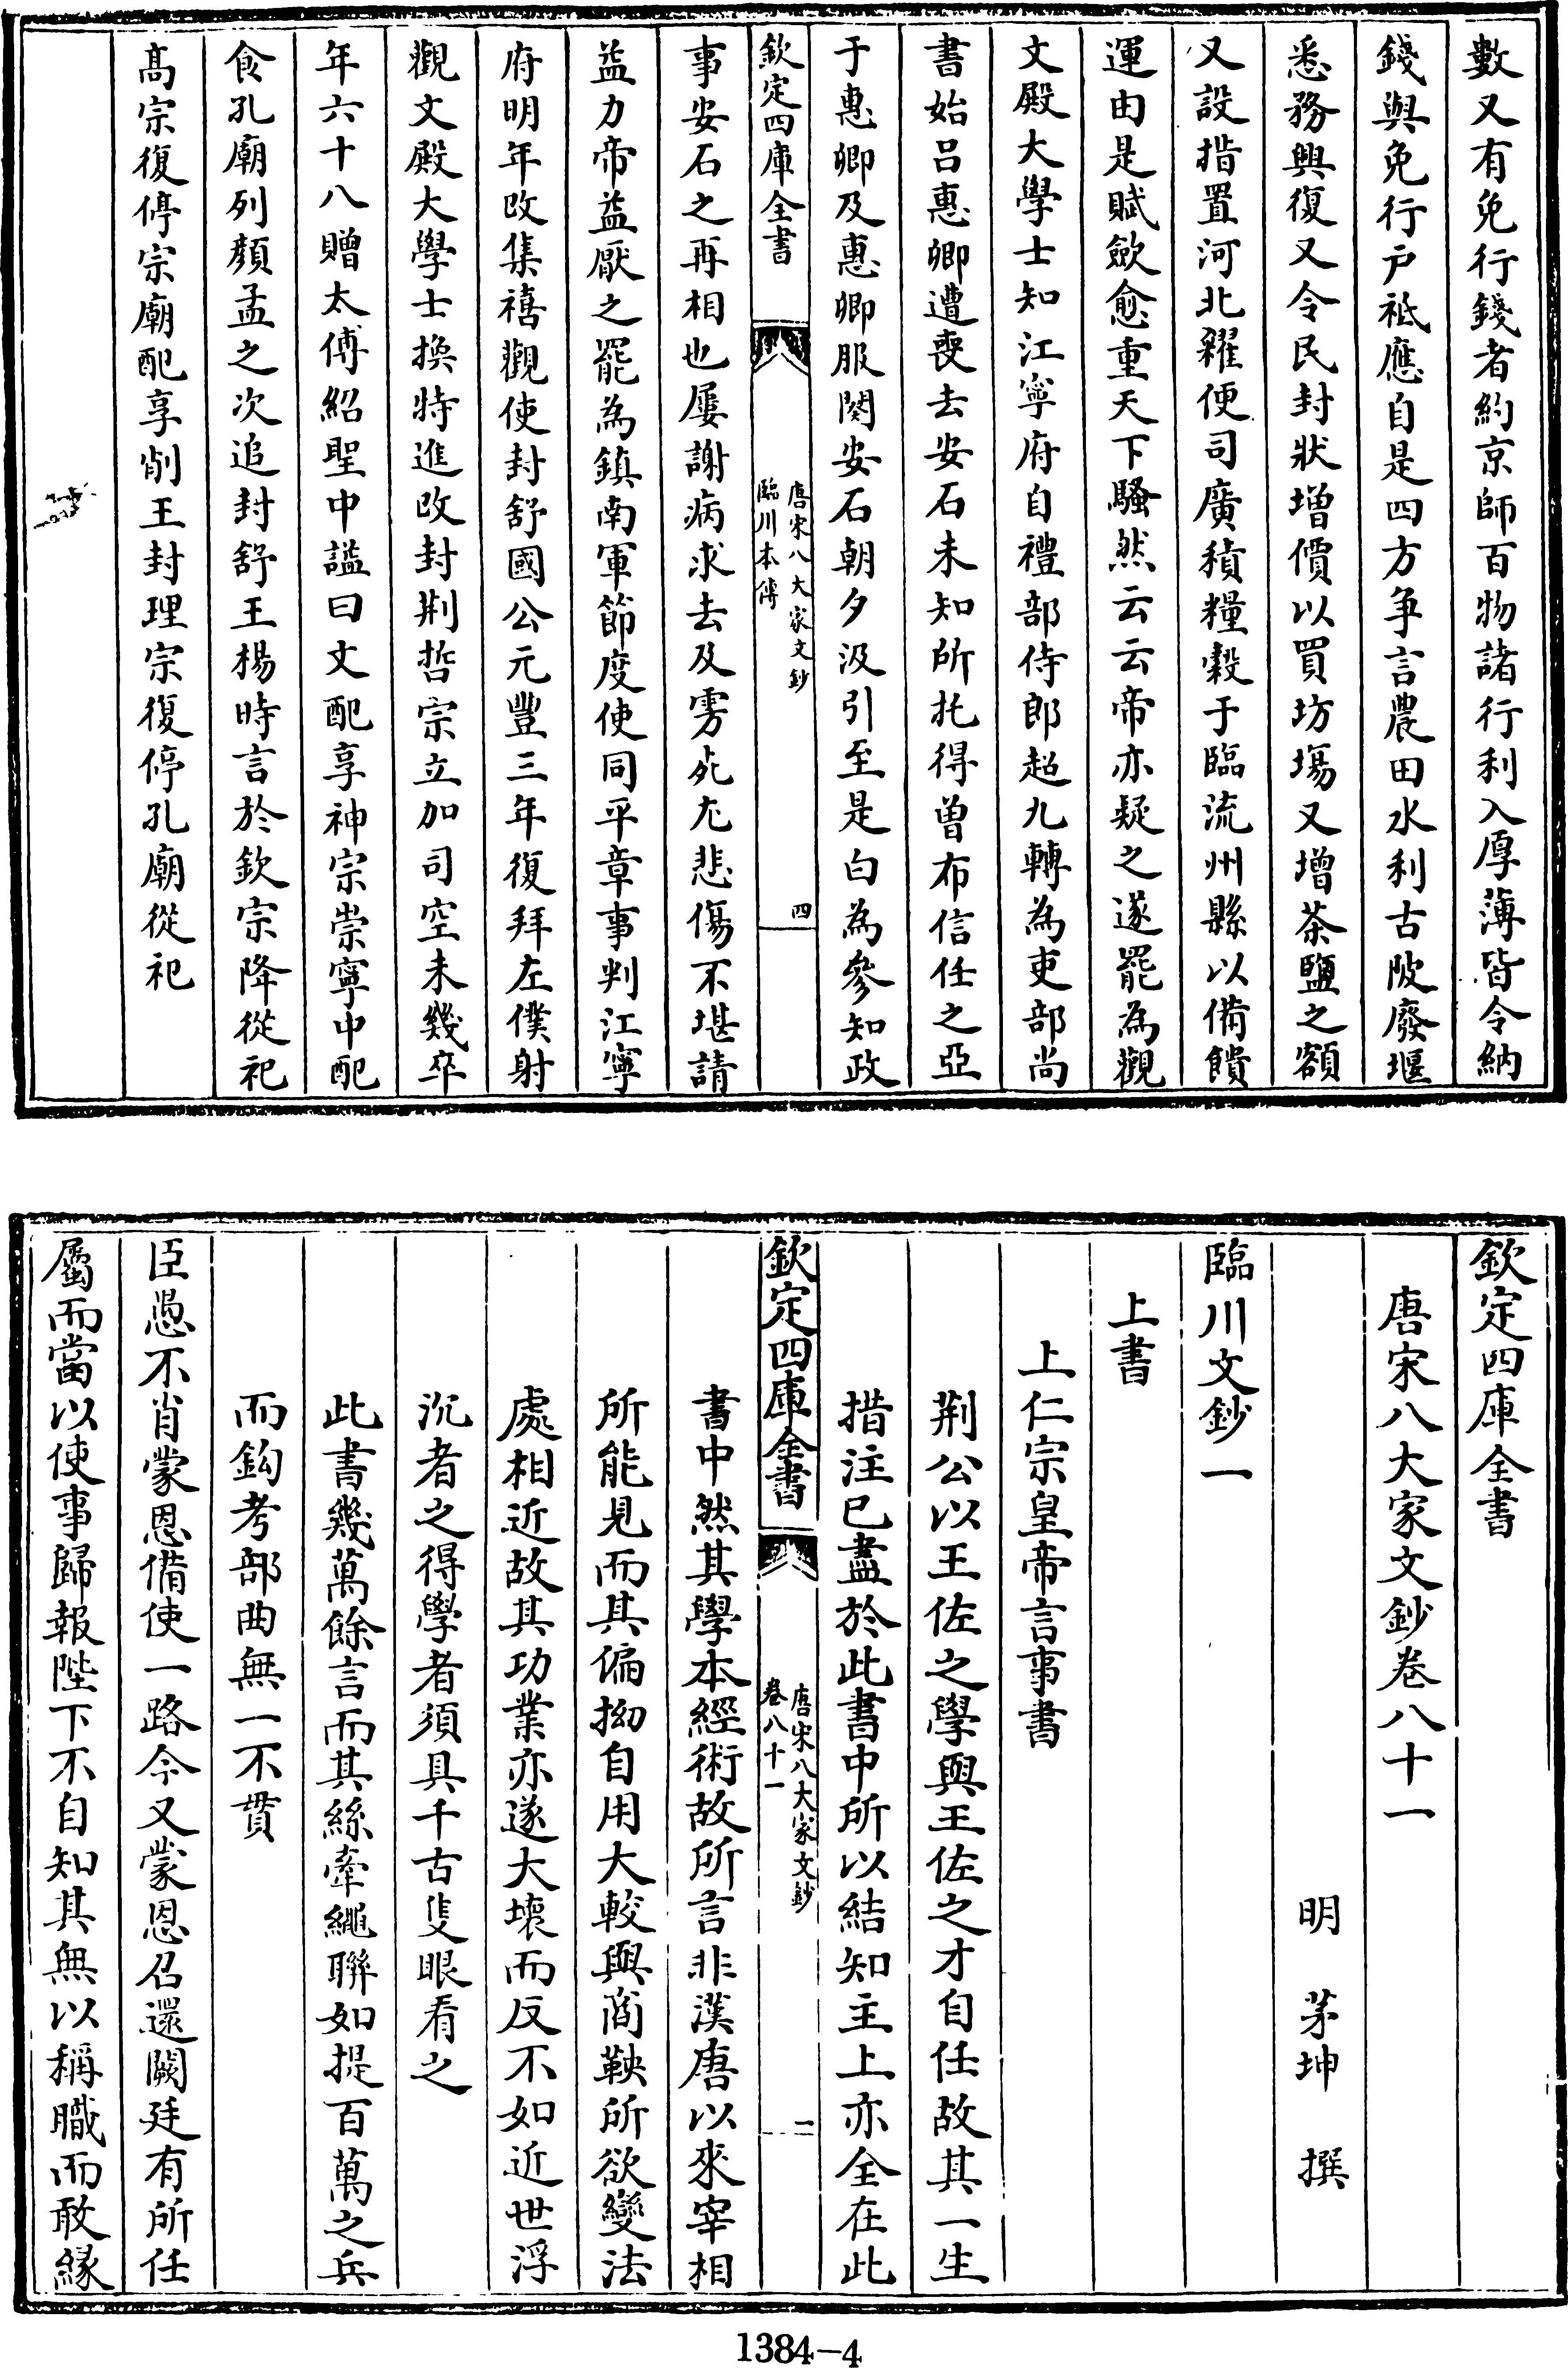 數又有免行錢者約京師百物諸行利入厚薄皆令納
錢與免行戶祗應自是四方争言農田水利古陂廢堰
悉務興復又令民封狀增價以買坊塲又增茶鹽之額
又設措置河北糴便司廣積糧穀于臨流州縣以備饋
運由是賦歛愈重天下騷然云云帝亦疑之遂罷為觀
文殿大學士知江寧府自禮部侍郎超九轉為吏部尚
書始吕惠卿遭喪去安石未知所托得曾布信任之亞
于惠卿及惠卿服闋安石朝夕汲引至是白為參知政
欽定四庫全書
唐宋八大家文鈔
臨川本傳
四
事安石之再相也屢謝病求去及雱死尤悲傷不堪請
益力帝益厭之罷為鎮南軍節度使同平章事判江寧
府明年改集禧觀使封舒國公元豐三年復拜左僕射
觀文殿大學士換特進改封荆哲宗立加司空未幾卒
年六十八贈太傅紹聖中謚曰文配享神宗崇寧中配
食孔廟列顔孟之次追封舒王楊時言於欽宗降從祀
髙宗復停宗廟配享削王封理宗復停孔廟從祀
欽定四庫全書
唐宋八大家文鈔卷八十一
明 茅坤 撰
臨川文鈔一
上書
上仁宗皇帝言事書
荆公以王佐之學與王佐之才自任故其一生
措注已盡於此書中所以結知主上亦全在此
欽定四庫全書
唐宋八大家文鈔
卷八十一
一
書中然其學本經術故所言非漢唐以來宰相
所能見而其偏拗自用大較與商鞅所欲變法
處相近故其功業亦遂大壞而反不如近世浮
沉者之得學者須具千古隻眼看之
此書幾萬餘言而其絲牽繩聯如提百萬之兵
而鈎考部曲無一不貫
臣愚不肖蒙恩備使一路今又蒙恩召還闕廷有所任
屬而當以使事歸報陛下不自知其無以稱職而敢緣
1384-4